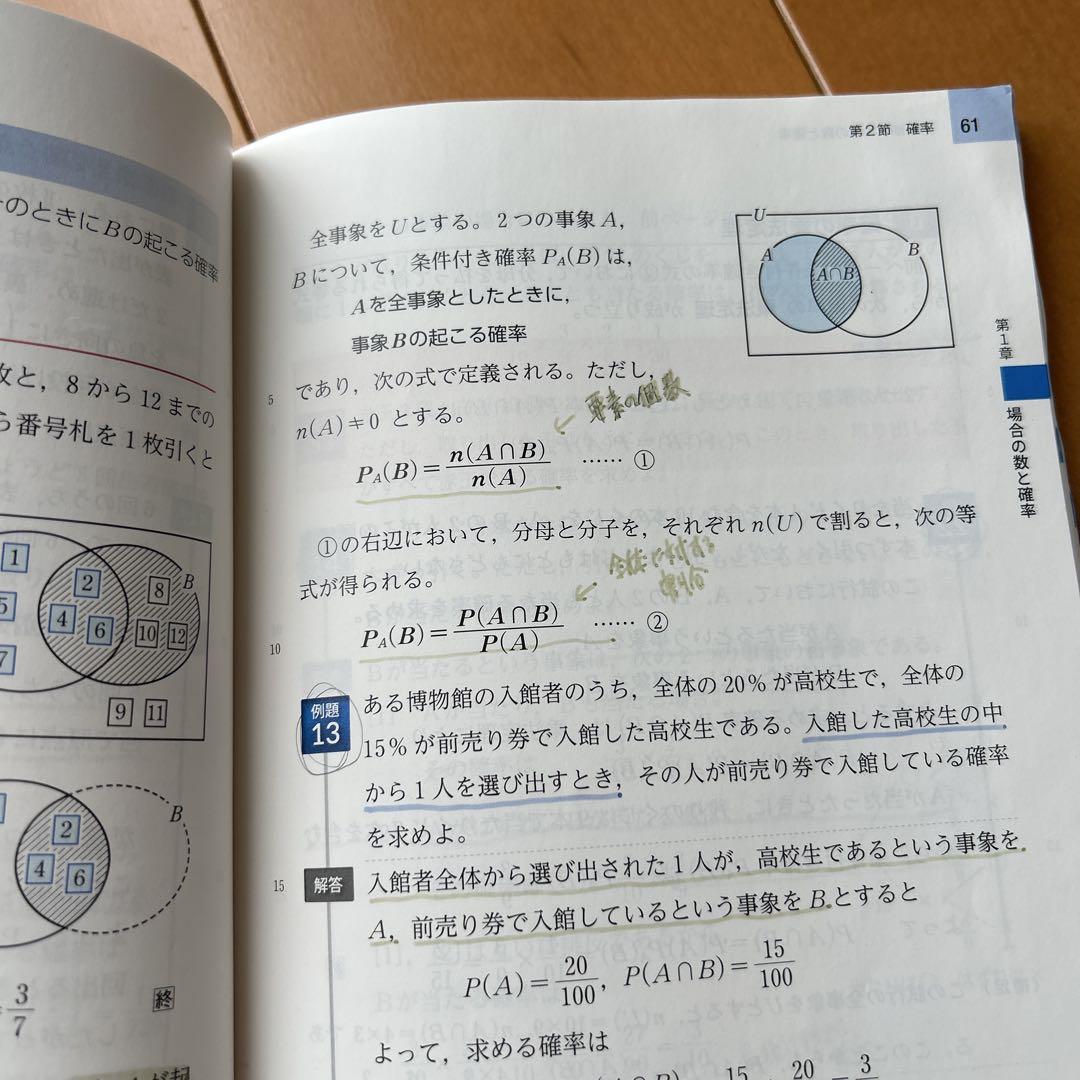 のときにBの起こる確率
枚と，8から12までの
ら番号札を1枚引くと
1
2
B
8
5
4
6
10
12
7
9
11
B
2
4
6
3/7
終
第2節 確率 61
全事象をUとする。2つの事象A，
Bについて，条件付き確率 P_A(B) は，
Aを全事象としたときに，
事象Bの起こる確率
5 であり，次の式で定義される。ただし，
n(A)≠0 とする。
要素の個数
P_A(B)=n(A∩B)/n(A) …… ①
①の右辺において，分母と分子を，それぞれ n(U) で割ると，次の等
式が得られる。
全体に対する
割合
10 P_A(B)=P(A∩B)/P(A) …… ②
U
A
A∩B
B
第1章
場合の数と確率
例題 13
ある博物館の入館者のうち，全体の20％が高校生で，全体の
15％が前売り券で入館した高校生である。入館した高校生の中
から1人を選び出すとき，その人が前売り券で入館している確率
を求めよ。
15 解答 入館者全体から選び出された1人が，高校生であるという事象を
A，前売り券で入館しているという事象をBとすると
P(A)=20/100，P(A∩B)=15/100
よって，求める確率は
15 20 3